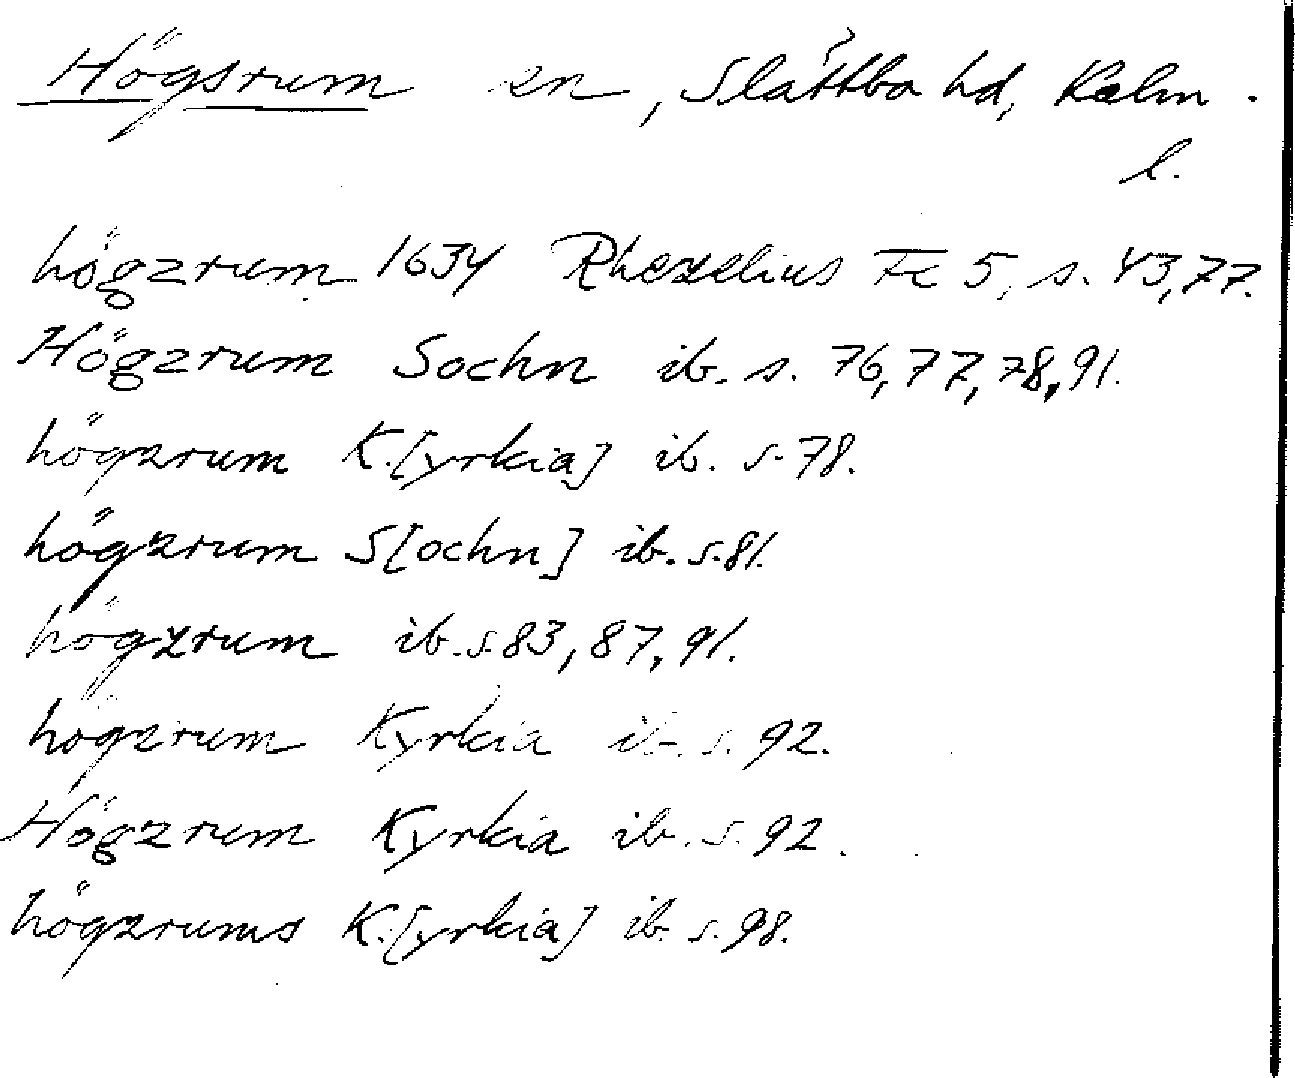 Högsrum sn, Slättbo hd, Kalm.
l.
högzrum 1634 Rhezelius Fc 5, s. 43, 77.
Högzrum Sochn ib. s. 76, 77, 78, 91.
högzrum K.[yrkia] ib. s. 78.
högzrum S[ochn] ib. s. 81.
högzrum ib. s. 83, 87, 91.
högzrum Kyrkia ib. s. 92.
Högzrum Kyrkia ib. s. 92.
högzrums K.[yrkia] ib. s. 98.